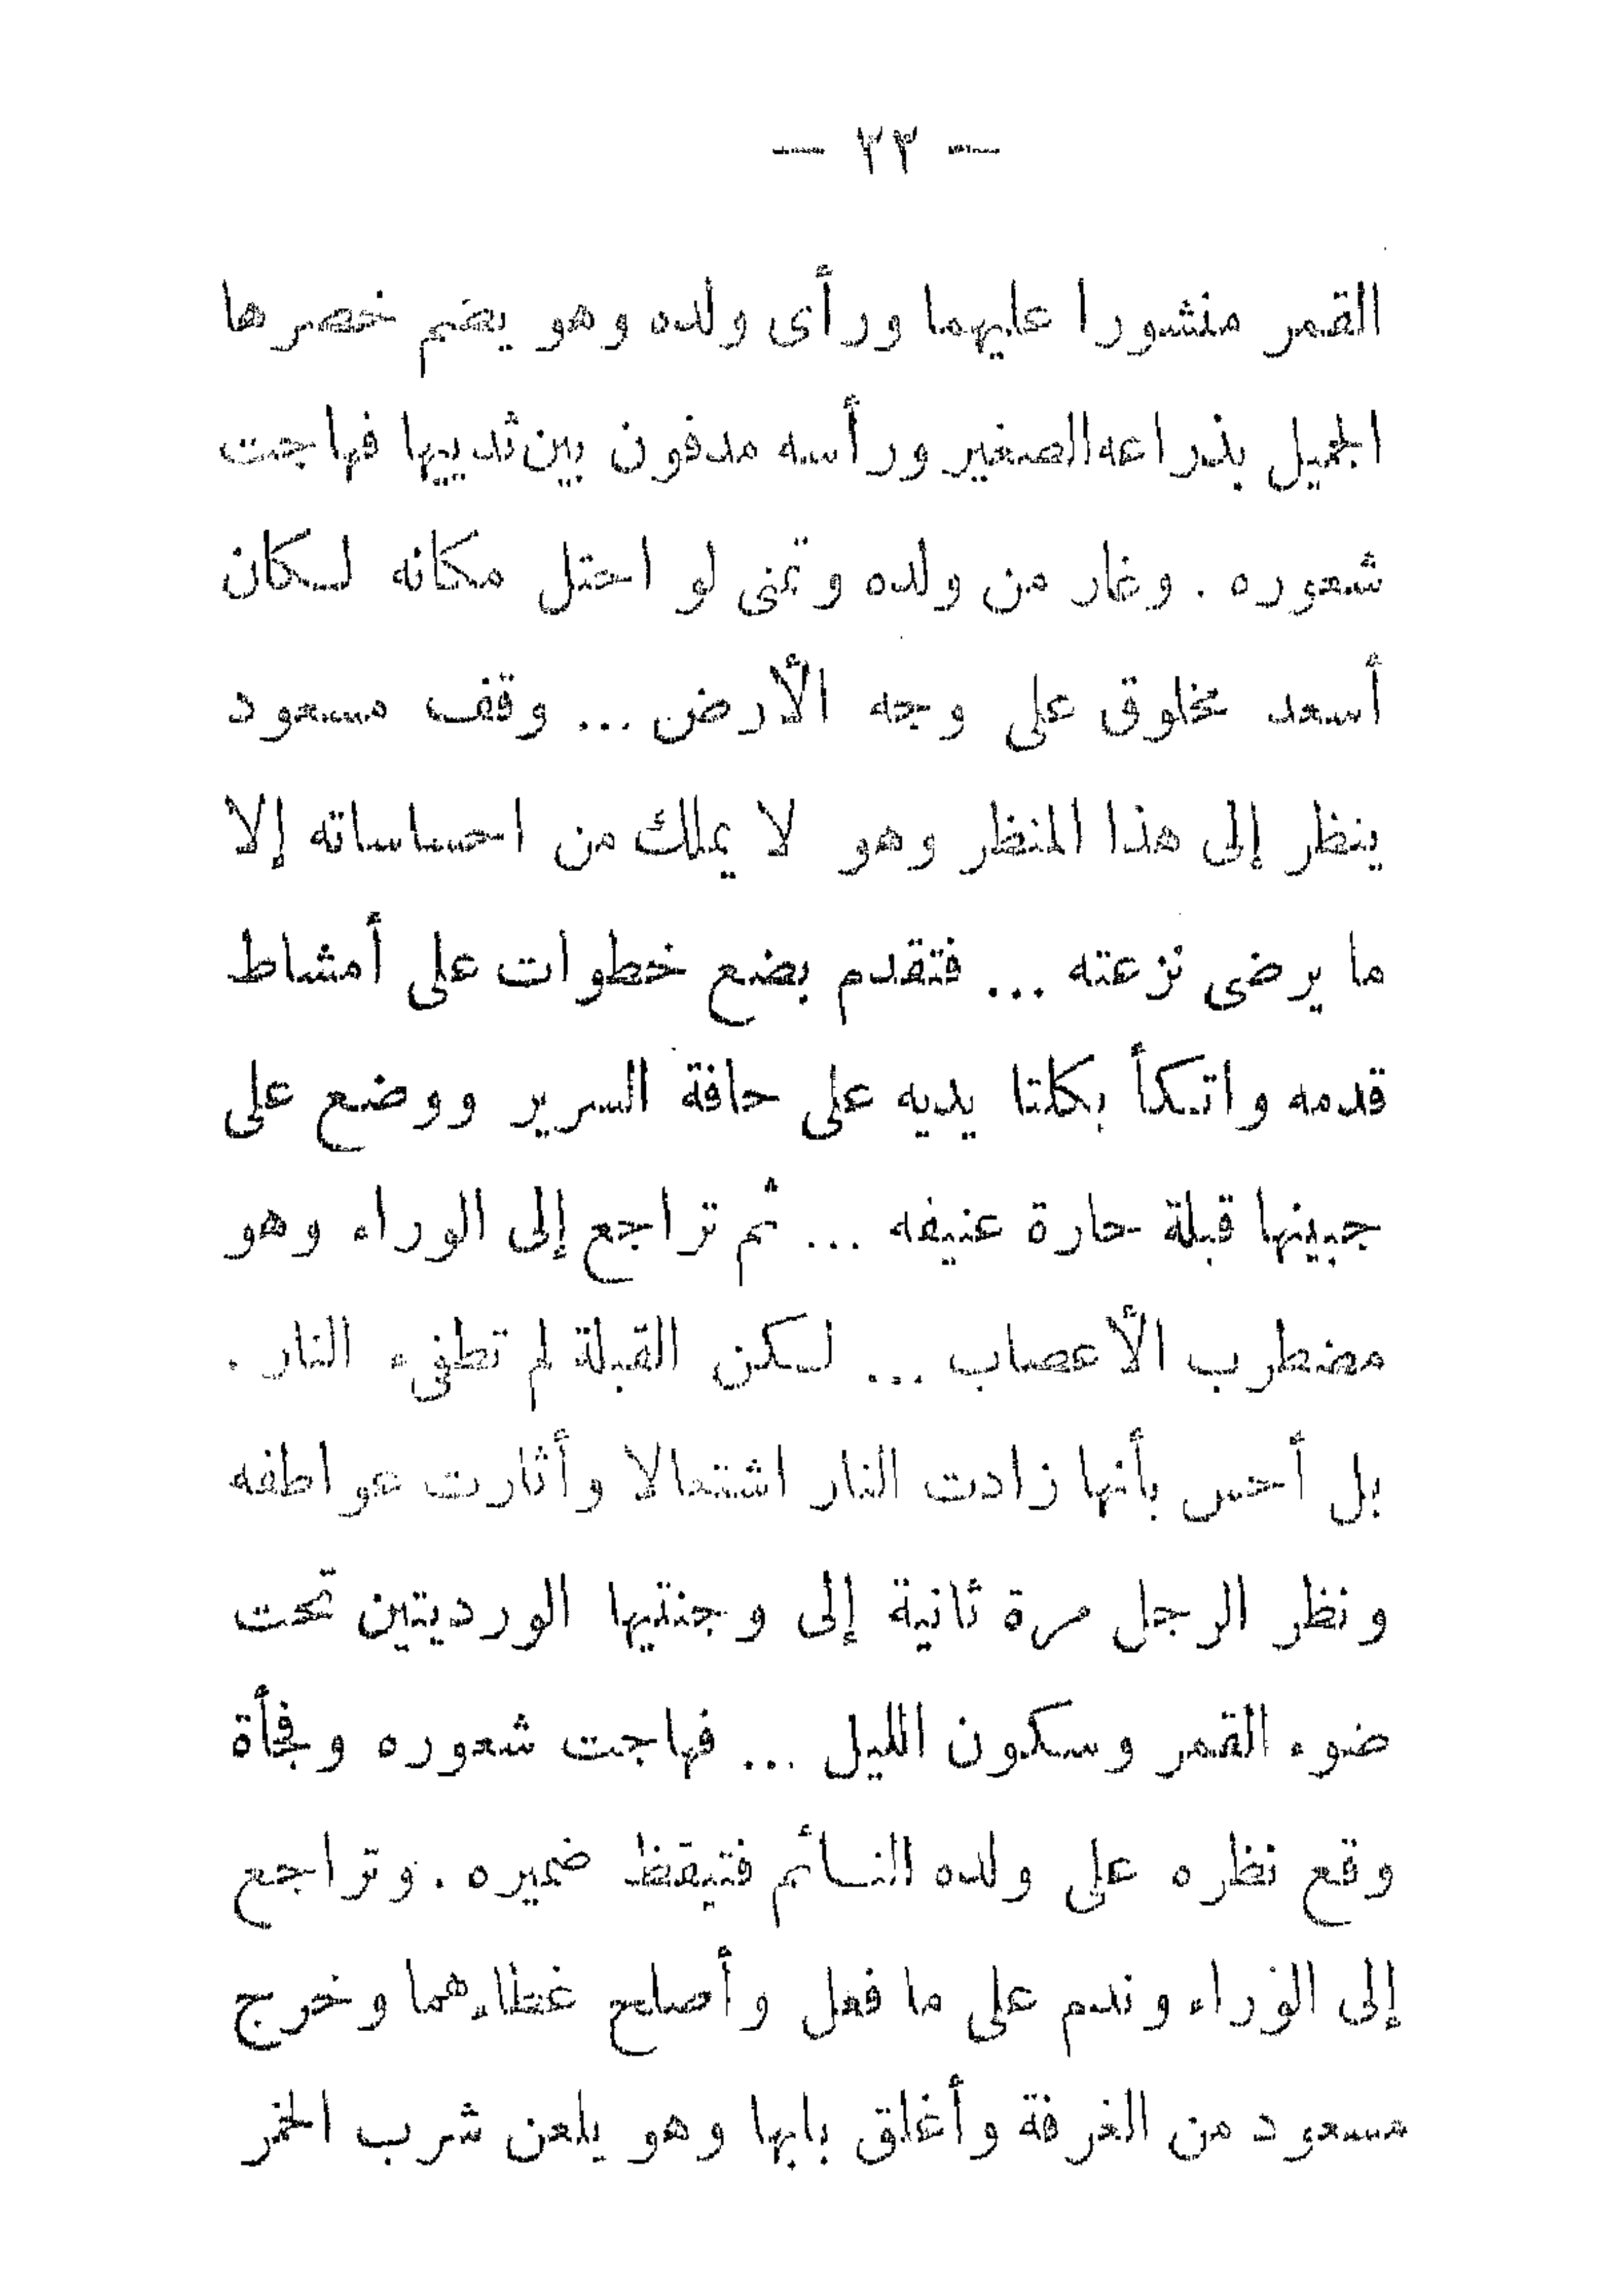 — ٢٣ —
القمر منشورا عليهما ورأى ولده وهو يضم خصرها
الجميل بذراعه الصغير ورأسه مدفون بين ثدييها فهاجت
شعوره . وغار من ولده وتمنى لو احتل مكانه لكان
أسعد مخلوق على وجه الأرض ... وقف مسعود
ينظر إلى هذا المنظر وهو لا يملك من احساساته إلا
ما يرضى نزعته ... فتقدم بضع خطوات على أمشاط
قدمه واتكأ بكلتا يديه على حافة السرير ووضع على
جبينها قبلة حارة عنيفه ... ثم تراجع إلى الوراء وهو
مضطرب الأعصاب ... لكن القبلة لم تطفىء النار .
بل أحس بأنها زادت النار اشتعالا وأثارت عواطفه
ونظر الرجل مرة ثانية إلى وجنتيها الورديتين تحت
ضوء القمر وسكون الليل ... فهاجت شعوره وفجأة
وقع نظره على ولده النائم فتيقظ ضميره . وتراجع
إلى الوراء وندم على ما فعل وأصلح غطاءهما وخرج
مسعود من الغرفة وأغلق بابها وهو يلعن شرب الخمر